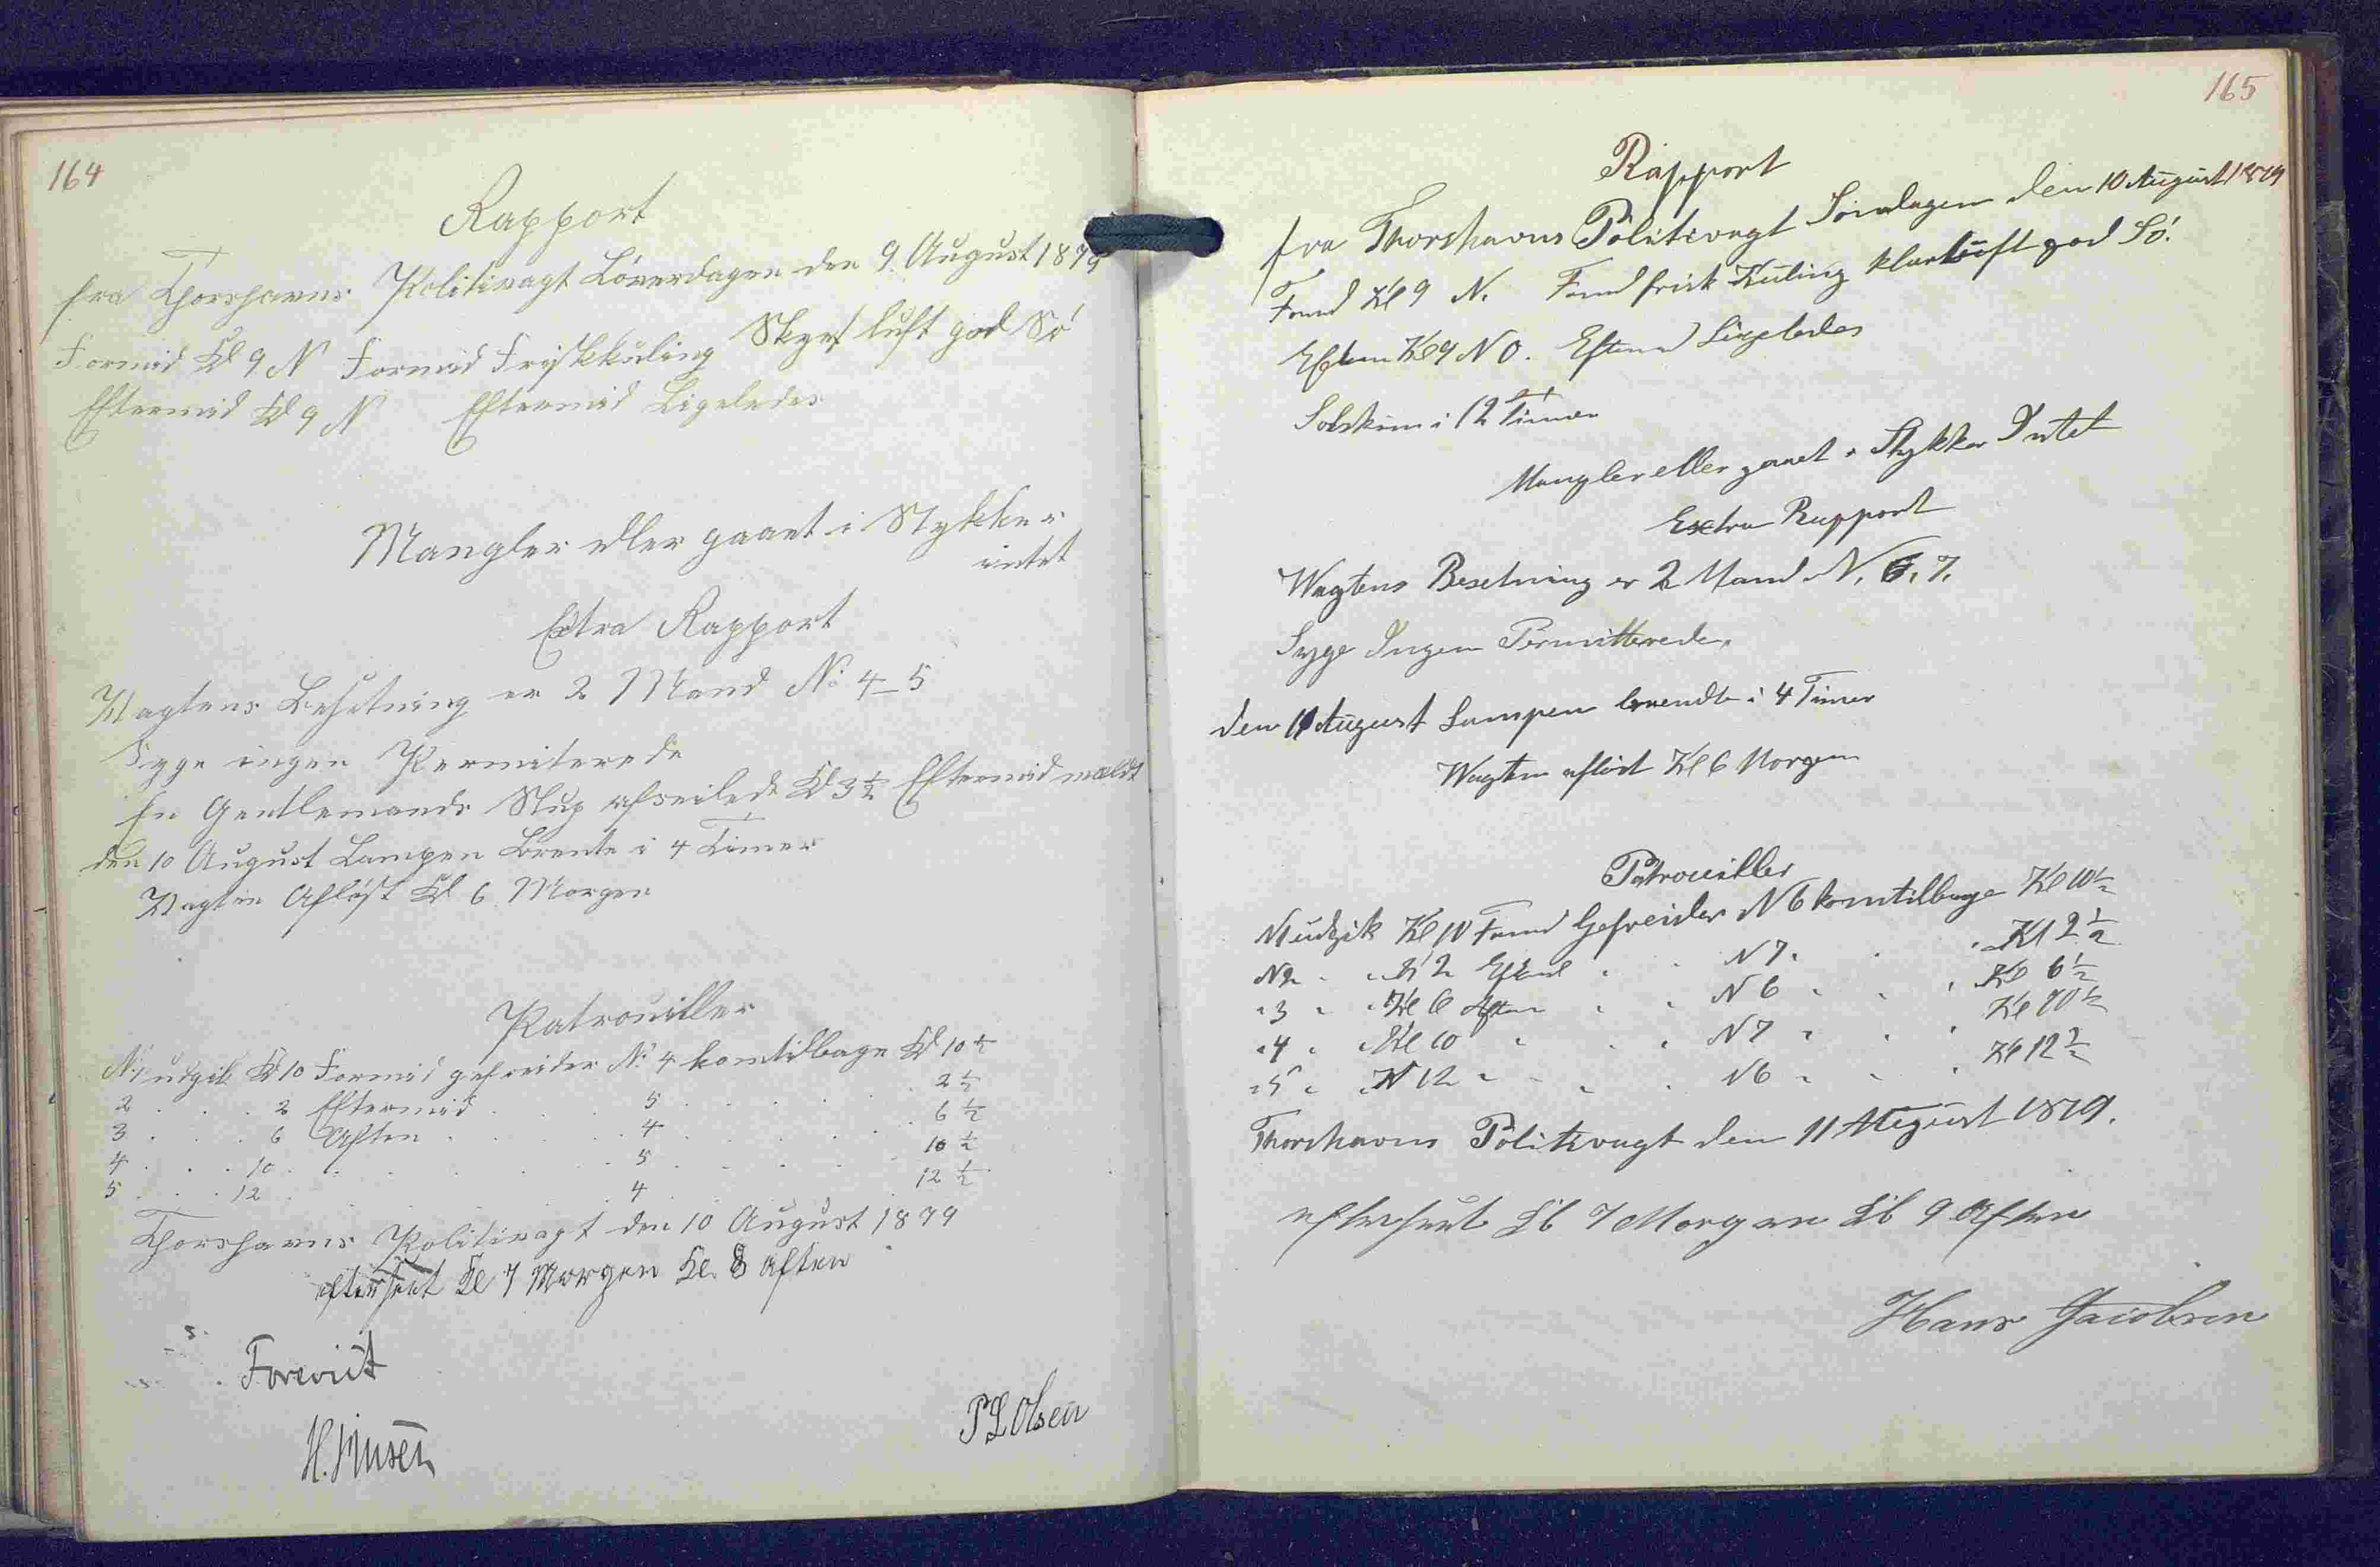 164
Rapport
fra Thorshavns Politivagt Löverdagen den 9 August 1879
Formid Kl 9 N Formid Friskkuling Skyet luft god Sö
Eftermid Kl 9 N Eftermid Ligeledes
Mangler eller gaaet i Stykker
intet
Extra Rapport
Vagtens Besetning er 2 Mand No 4–5
Syge ingen Permiterede
En Gentlemands Slup afseilede Kl 3½ Eftermid meldt
den 10 August Lampen Brente i 4 Timer
Vagten Aflöst Kl 6 Morgen
Patrouiller
No 1 udgik Kl 10 Formid gefreider No 4 komtilbage Kl 10½
2 . . . 2 Eftermid . . 5 . . . 2½
3 . . . 6 Aften . . 4 . . . 6½
4 . . . 10 . . . 5 . . . 10½
5 . . . 12 . . . 4 . . . 12½
Thorshavns Politivagt den 10 August 1879
efterseet Kl 7 Morgen Kl. 8 aften
Foreviist
P L Olsen
165
Rapport
fra Thorshavns Politivagt Söndagen den 10 August 1879
Formd Kl 9 N. Formd frisk Kuling klar luft god Sö.
Eftem Kl 9 NO. Eftem Ligeledes
Solskin i 12 Timer
Mangler eller gaaet i Stykker Intet
Extra Rapport
Wagtens Besetning er 2 Mand N. 6. 7.
Syge Ingen Permitterede.
den 11 August Lampen brendte i 4 Timer
Wagten aflöst Kl 6 Morgen
Patrouiller
N1 udgik Kl 10 Formd Gefreider N 6 komtilbage Kl 10½
N2 " " Kl 2 Eftmd " " N 7 " " Kl 2½
" 3 " " Kl 6 Aften " " N 6 " " " Kl 6½
" 4 " " Kl 10 " " " N 7 " " " Kl 10½
" 5 " " Kl 12 " " " N 6 " " " Kl 12½
Thorshavns Politivagt den 11 August 1879.
efterseet Kl 7 Morgen Kl 9 Aften
Hans Jacobsen